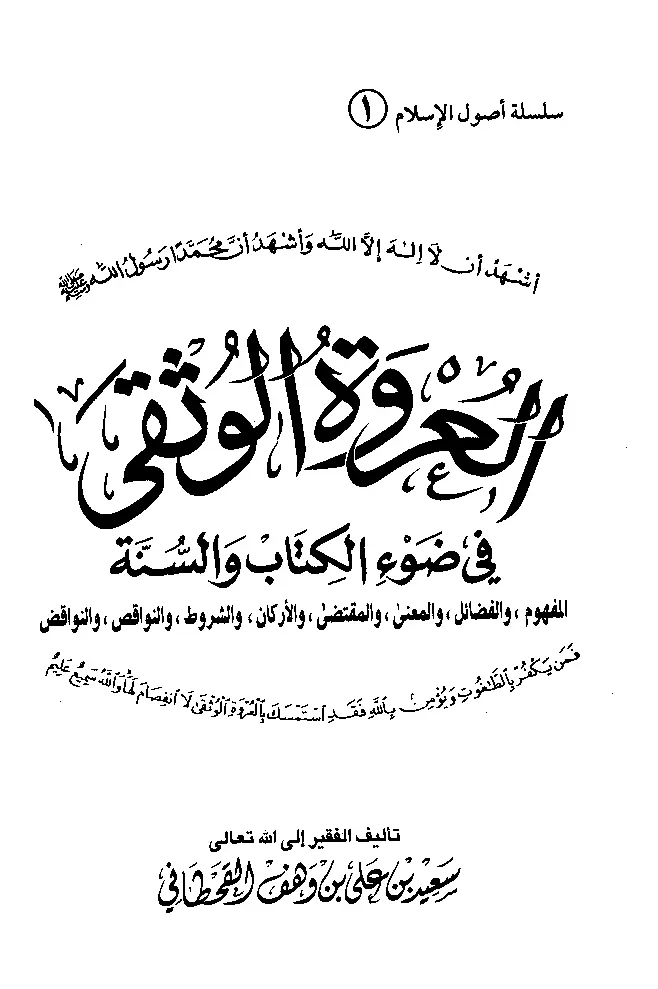 سلسلة أصول الإسلام ١
أشهد أن لا إله إلا الله وأشهد أن محمدًا رسول الله ﷺ
العُروة الوُثقى
في ضَوْءِ الكِتَابِ وَالسُّنَّة
المفهوم، والفضائل، والمعنى، والمقتضى، والأركان، والشروط، والنواقص، والنواقض
فَمَن يَكْفُرْ بِالطَّاغُوتِ وَيُؤْمِن بِاللَّهِ فَقَدِ اسْتَمْسَكَ بِالْعُرْوَةِ الْوُثْقَىٰ لَا انفِصَامَ لَهَا وَاللَّهُ سَمِيعٌ عَلِيمٌ
تأليف الفقير إلى الله تعالى
سعيد بن علي بن وهف القحطاني